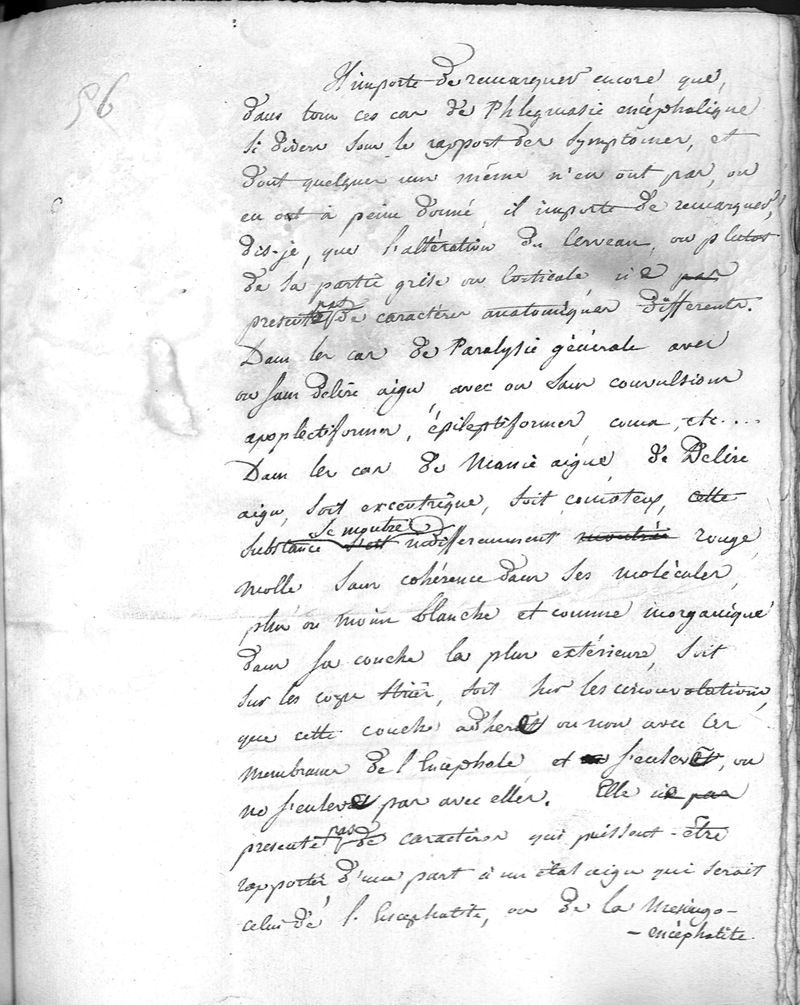 56
Il importe de remarquer encore que,
dans tous ces cas de Phlegmasie encéphalique
si divers sous le rapport des symptômes, et
dont quelques uns même n'en ont pas, ou
en ont à peine donné, il importe de remarquer,
dis-je, que l'altération du Cerveau, ou plutot
de sa partie grise ou Corticale, n'a pas
presenté pas de caractères anatomiques différents.
Dans les cas de Paralysie générale avec
ou sans Délire aigu, avec ou sans convulsions
apoplectiformes, épileptiformes, coma, etc....
Dans les cas de Manie aiguë, de Délire
aigu, soit excentrique, soit comateux, cette
substance s'est se montre indifferemment montrée rouge,
molle sans cohérence dans ses molécules,
plus ou moins blanche et comme inorganique
dans sa couche la plus extérieure, soit
sur les corps striés, soit sur les circonvolutions,
que cette couche adhere ou non avec les
membranes de l'Encéphale et s'enleve, ou
ne s'enleve pas avec elles. Elle n'a pas
presente pas de caractères qui puissent être
rapportés d'une part à un état aigu qui serait
celui de l'Encéphalite, ou de la Meningo-
-encéphalite.